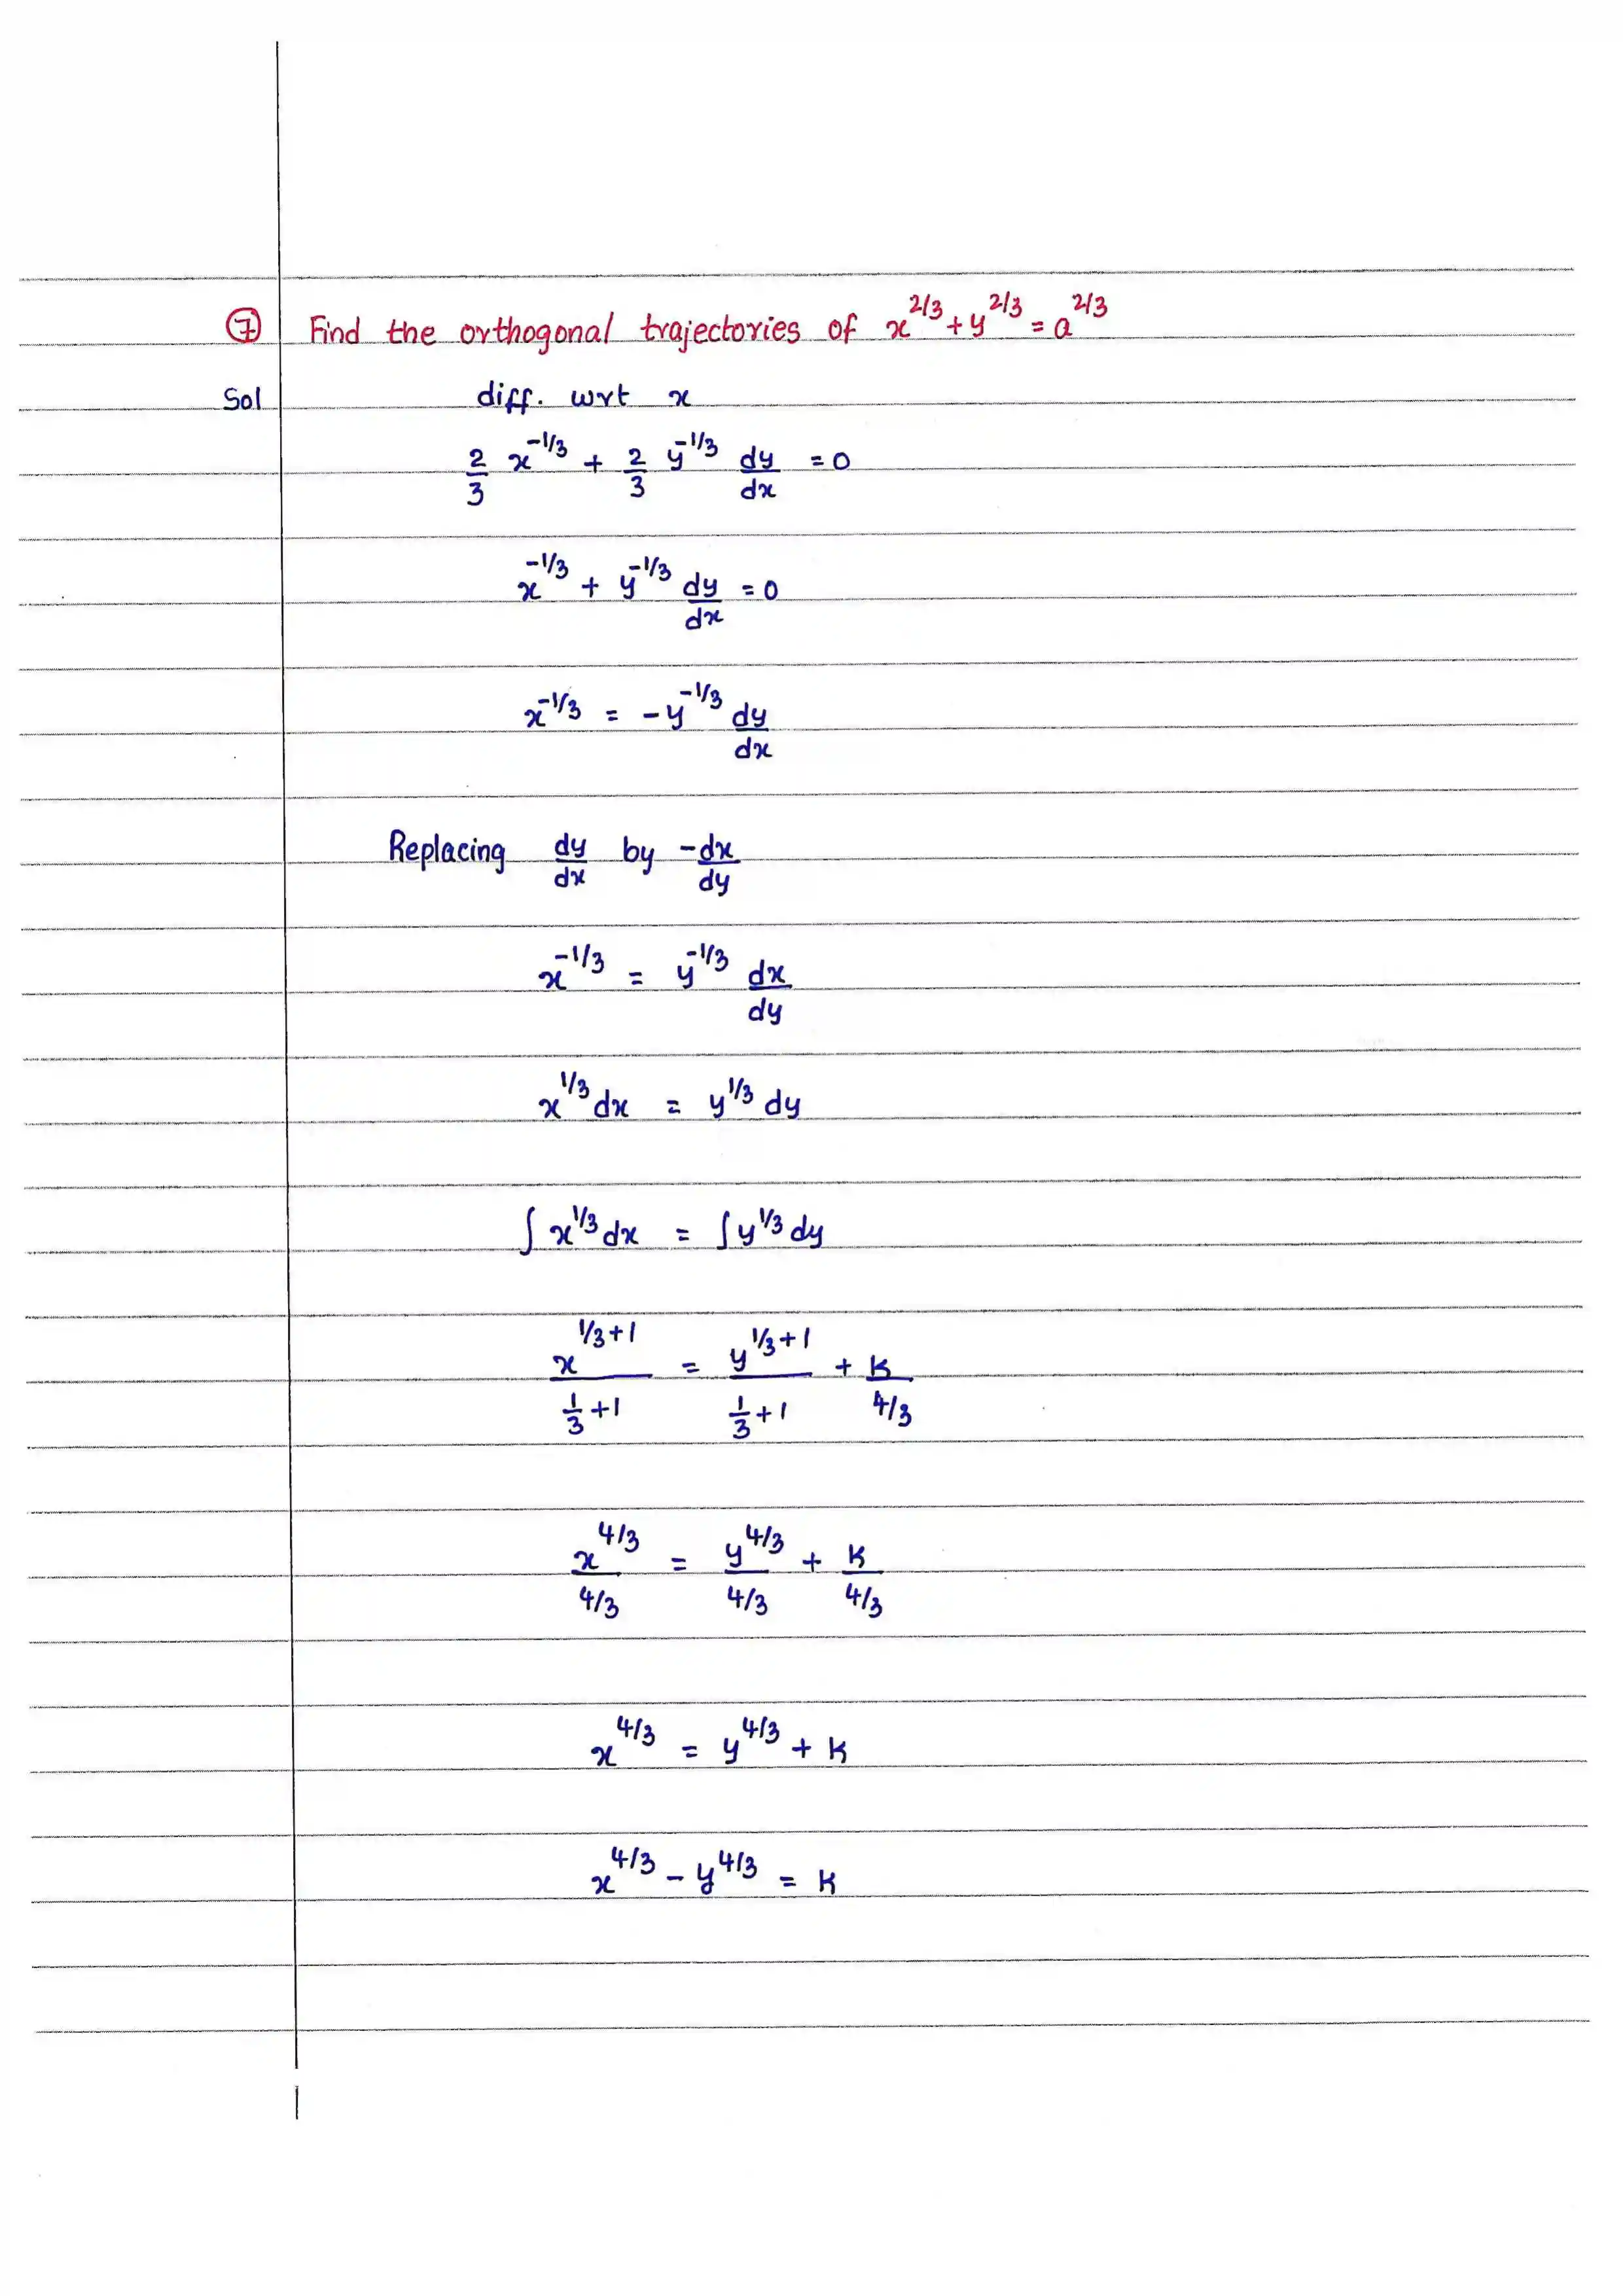 ⑦ Find the orthogonal trajectories of x^{2/3} + y^{2/3} = a^{2/3}
Sol diff. wrt x
2/3 x^{-1/3} + 2/3 y^{-1/3} dy/dx = 0
x^{-1/3} + y^{-1/3} dy/dx = 0
x^{-1/3} = -y^{-1/3} dy/dx
Replacing dy/dx by -dx/dy
x^{-1/3} = y^{-1/3} dx/dy
x^{1/3} dx = y^{1/3} dy
∫ x^{1/3} dx = ∫ y^{1/3} dy
x^{1/3+1}/(1/3+1) = y^{1/3+1}/(1/3+1) + K/(4/3)
x^{4/3}/(4/3) = y^{4/3}/(4/3) + K/(4/3)
x^{4/3} = y^{4/3} + K
x^{4/3} - y^{4/3} = K